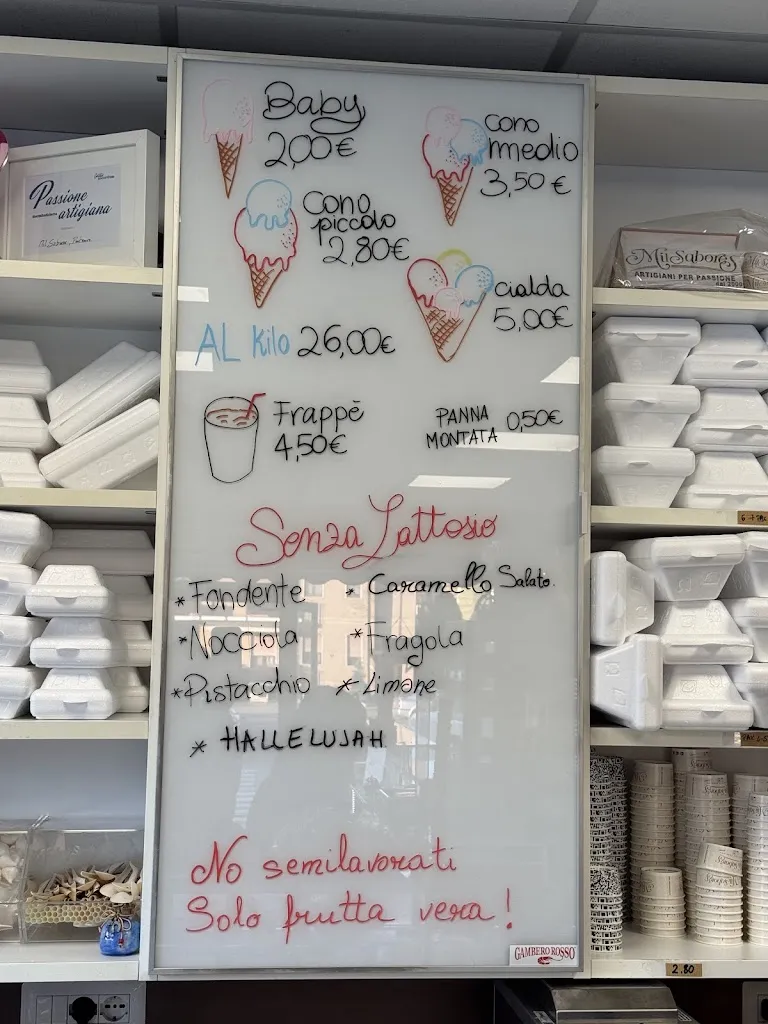 Baby
2,00€
cono
medio
3,50€
Cono
piccolo
2,80€
cialda
5,00€
AL Kilo 26,00€
Frappè
4,50€
PANNA
MONTATA 0,50€
Senza Lattosio
* Fondente
* Caramello Salato.
* Nocciola
* Fragola
* Pistacchio
* Limone
* HALLELUJAH
No semilavorati
Solo frutta vera!
GAMBERO ROSSO
Passione
artigiana
MilSabores
ARTIGIANI PER PASSIONE
2.80